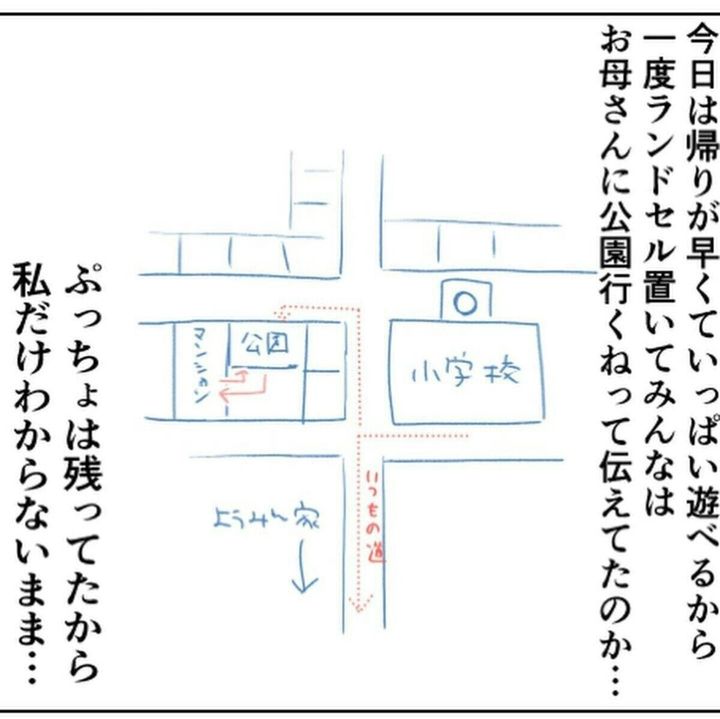 今日は帰りが早くていっぱい遊べるから
一度ランドセル置いてみんなは
お母さんに公園行くねって伝えてたのか…
公園
マンション
小学校
いつもの道
ようみん家
ぷっちょは残ってたから
私だけわからないまま…